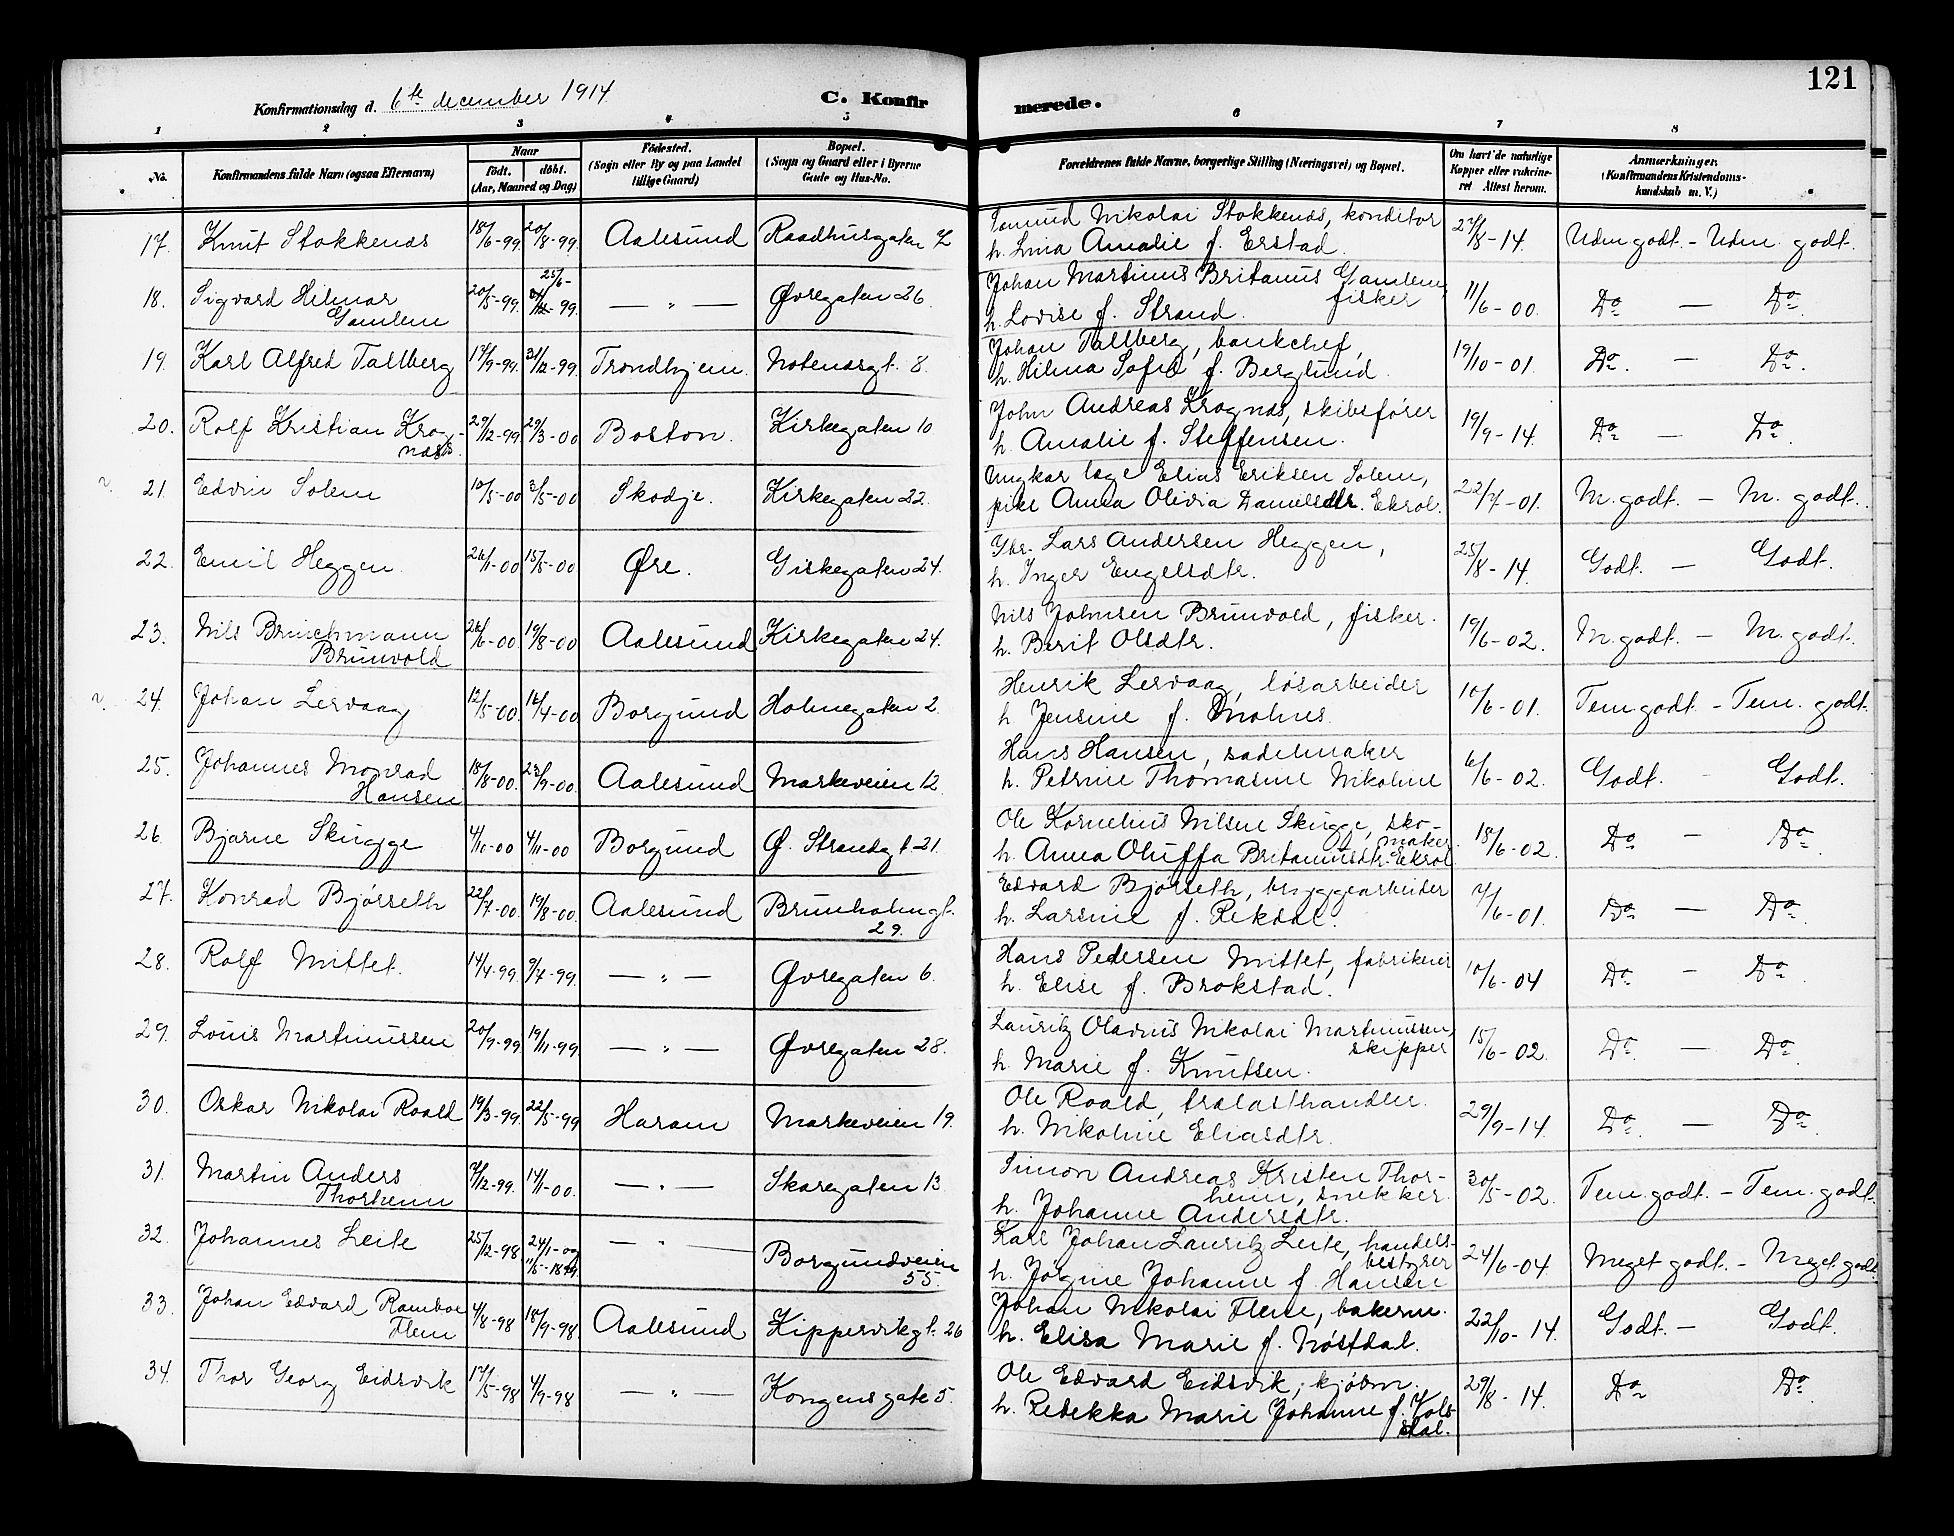 121
Konfirmationsdag d. 6te december 1914
C. Konfirmerede.
1 2 3 4 5 6 7 8
No. Konfirmandens fulde Navn (ogsaa Efternavn) Naar født. døbt. (Aar, Maaned og Dag) Fødested. (Sogn eller By og paa Landet tillige Gaard) Bopæl. (Sogn og Gaard eller i Byerne Gade og Hus-No. Forældrenes fulde Navne, borgerlige Stilling (Næringsvei) og Bopæl. Om havt de naturlige Kopper eller vakcineret Attest herom. Anmærkninger. (Konfirmandens Kristendomskundskab m. V.)
17. Knut Stokkenæs 18/6-99 20/8-99. Aalesund Raadhusgaten
Nikolai Stokkenæs, konditor
h. Lina Amalie f. Erstad. 27/8-14. Udm godt. - Udm. godt.
18. Sigvard Hilmar
Gamlem 20/5-99. 25/6- 99. — " — Øvregaten 26.
Johan Martinus Britanus Gamlem,
fisker
h. Lovise f. Strand. 11/6-00. Do — Do
19. Karl Alfred Tallberg 17/9-99. 31/12-99. Trondhjem. Notenesgt. 8.
Johan Tallberg, bankchef,
h. Hilma Sofie f. Berglund. 19/10-01. Do. — Do.
20. Rolf Kristian Krog-
næs 29/12-99 29/3-00 Boston. Kirkegaten 10
John Andreas Krognæs, skibsfører
h. Amalie f. Steffensen. 19/9-14. Do — Do.
21. Edvin Solem 10/5-00 3/5-00 Skodje. Kirkegaten 22.
Ungkar lage Elias Eriksen Solem,
pike Anna Olivia Danielsdtr. Ekrol. 22/7-01. M. godt - M. godt.
22. Emil Heggen. 26/1-00 15/5-00 Øre. Giskegaten 24.
Gbr. Lars Andersen Heggen,
h. Inger Engelsdtr. 25/8-14. Godt. — Godt.
23. Nils Bruschmann
Brunvold 26/6-00 19/8-00 Aalesund Kirkegaten 24.
Nils Johnsen Brunvold, fisker.
h. Berit Olsdtr. 19/6-02. M. godt. - M. godt.
24. Johan Lervaag 12/5-00. 16/4-00 Borgund Holmegaten 2.
Henrik Lervaag, løsarbeider
h. Jensine f. Molnes. 10/6-01. Tem godt - Tem. godt.
25. Johannes Monrad
Hansen 18/8-00. 23/9-00. Aalesund Markeveien 12.
Hans Hansen, sadelmaker
h. Petrine Thomasine Nikoline 6/6-02. Godt. - Godt.
26. Bjarne Skugge 4/10-00 4/11-00 Borgund Ø. Strandgt. 21.
Ole Kornelius Nilsen Skugge, sko-
maker.
h. Anna Oluffa Britanusdtr. Ekrol 18/6-02. Do — Do
27. Konrad Bjørseth 22/7-00. 19/8-00. Aalesund Brunholmgt.
29.
Edvard Bjørseth, bryggearbeider
h. Larsine f. Rekdal. 7/6-01. Do — Do
28. Rolf Mittet. 14/4-99. 9/7-99. — " — Øvregaten 6.
Hans Pedersen Mittet, fabrikeier
h. Elise f. Brokstad. 10/6-04 Do — Do
29. Louis Martinussen 20/9-99 19/11-99. — " — Øvregaten 28.
Lauritz Olavus Nikolai Martinussen,
skipper
h. Marie f. Knutsen. 15/6-02. Do — Do
30. Oskar Nikolai Roald 19/3-99. 22/5-99 Haram Markeveien 19.
Ole Roald, trælasthandler.
h. Nikoline Eliasdtr. 29/9-14. Do. — Do.
31. Martin Anders
Thorheim 7/12-99. 14/1-00. — " — Skaregaten 13
Simon Andreas Kristen Thor-
heim, snekker.
h. Johanne Andersdtr. 30/5-02. Tem. godt - Tem. godt.
32. Johannes Leite 25/12-98 24/1-00 11/5-1899 — " — Borgundveien
55.
Karl Johan Lauritz Leite, handels-
bestyrer
h. Jørgine Johanne f Hansen 24/6-04. Meget godt. - Meget godt
33. Johan Edvard Ramboe
Flem 4/8-98 18/9-98. Aalesund Kippervikgt. 26
Johan Nikolai Flem, bakerm.
h. Elisa Marie f. Nøstdal. 22/10-14. Godt. — Godt.
34. Thor Georg Eidsvik 17/5-98 4/9-98 — " — Kongensgate 5.
Ole Edvard Eidsvik, kjøbm.
h. Rebekka Marie Johanne f. Kols-
dal. 29/8-14. Do Do